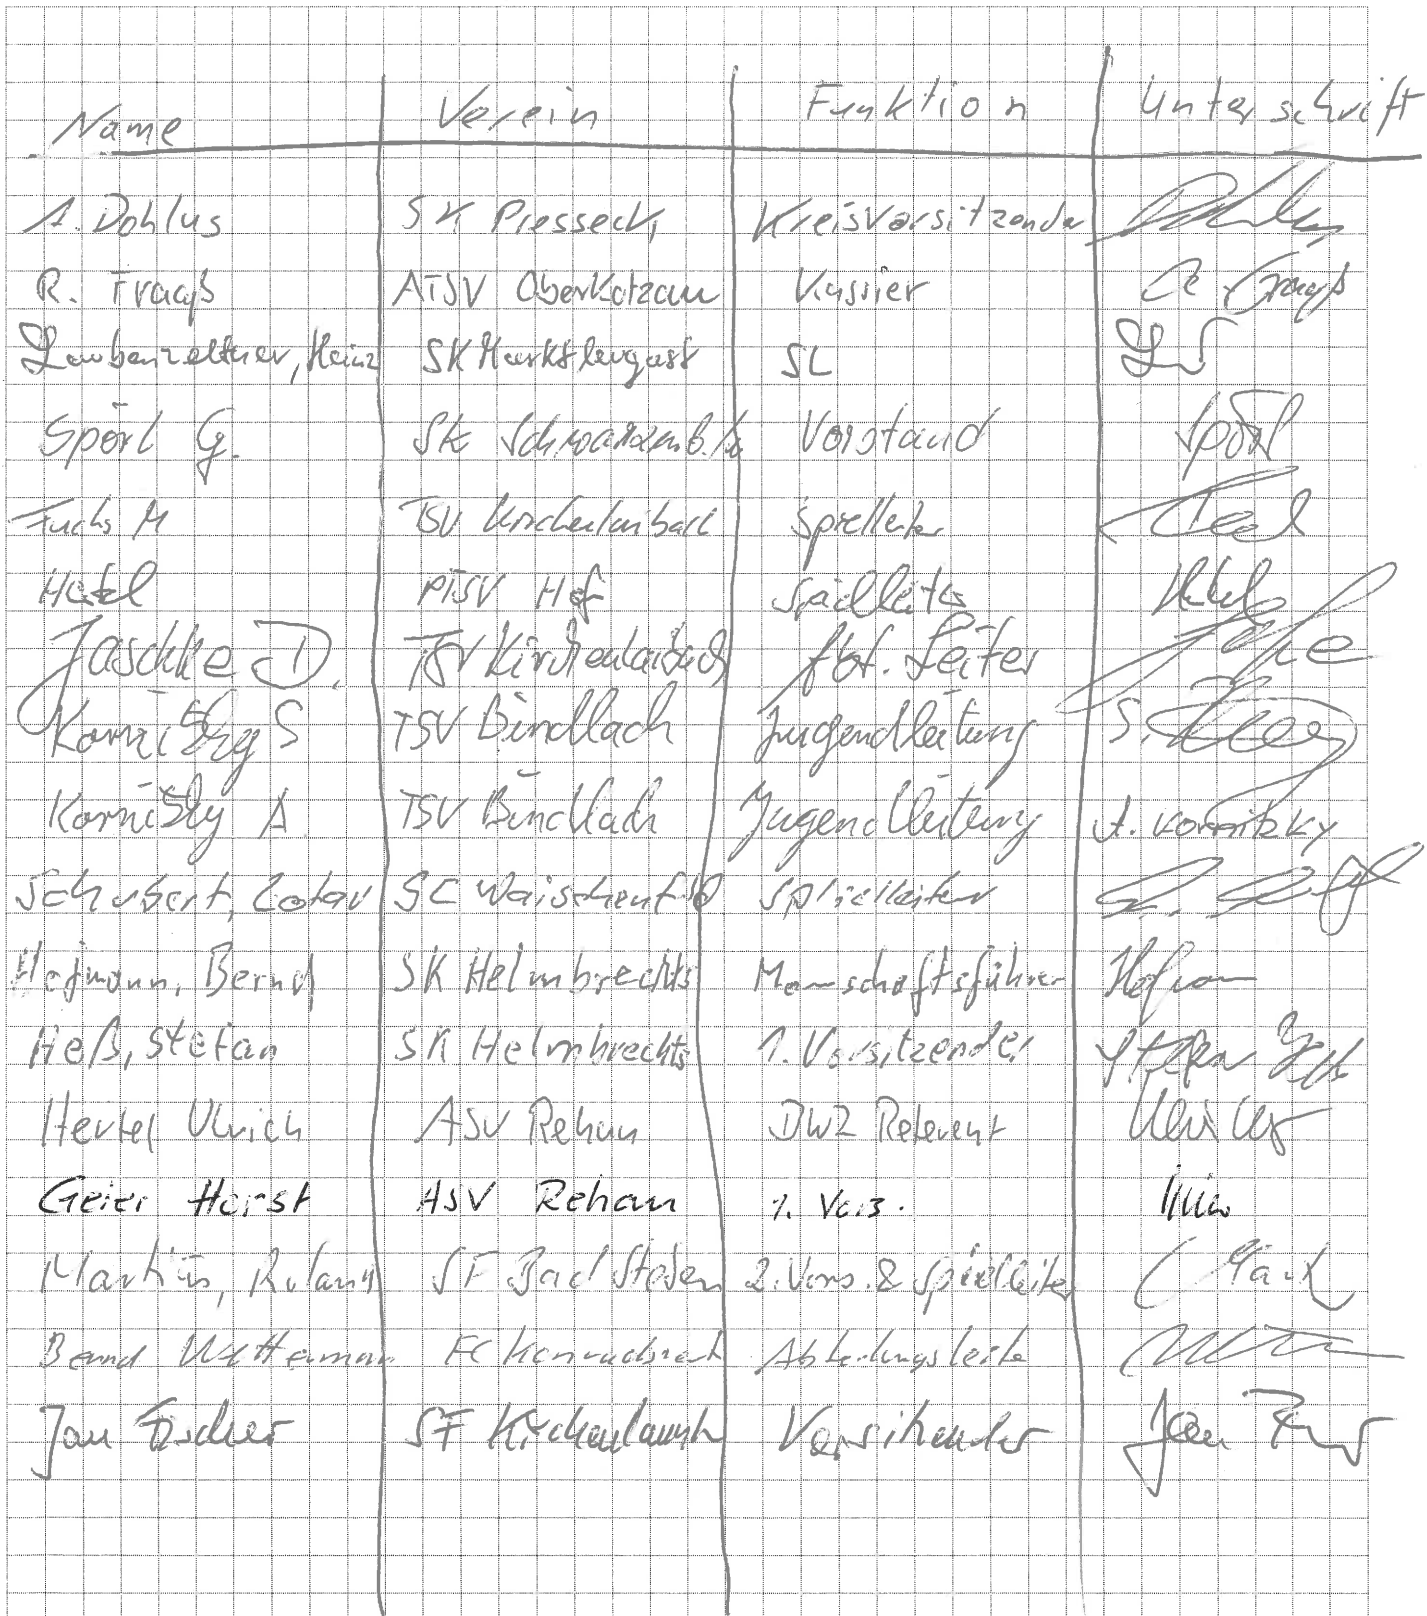 Name Verein Funktion Unterschrift
A. Dohlus SK Presseck Kreisvorsitzender
R. Traaß ATSV Oberkotzau Kassier R. Traaß
Laubenzeltner, Heinz SK Marktleugast SL
Spörl G. SK Vorstand Spörl
Fuchs M TSV Kirchenlaibach Spielleiter
PTSV Hof Spielleiter
Jaschke D. TSV Kirchenlaibach Abt. Leiter
S TSV Bindlach Jugendleitung S.
Kornitzky A TSV Bindlach Jugendleitung A. Kornitzky
Schubert, Lotar SC Waischenfeld Spielleiter
Hofmann, Bernd SK Helmbrechts Mannschaftsführer
Heß, Stefan SK Helmbrechts 1. Vorsitzender Stefan Heß
Hertel Ulrich ASV Rehau DWZ Referent
Geier Horst ASV Rehau 1. Vors.
Martius, Roland SF Bad Steben 2. Vors. & Spielleiter
Bernd FC Abteilungsleiter
Jan Fischer SF Kirchenlamitz Vorsitzender Jan